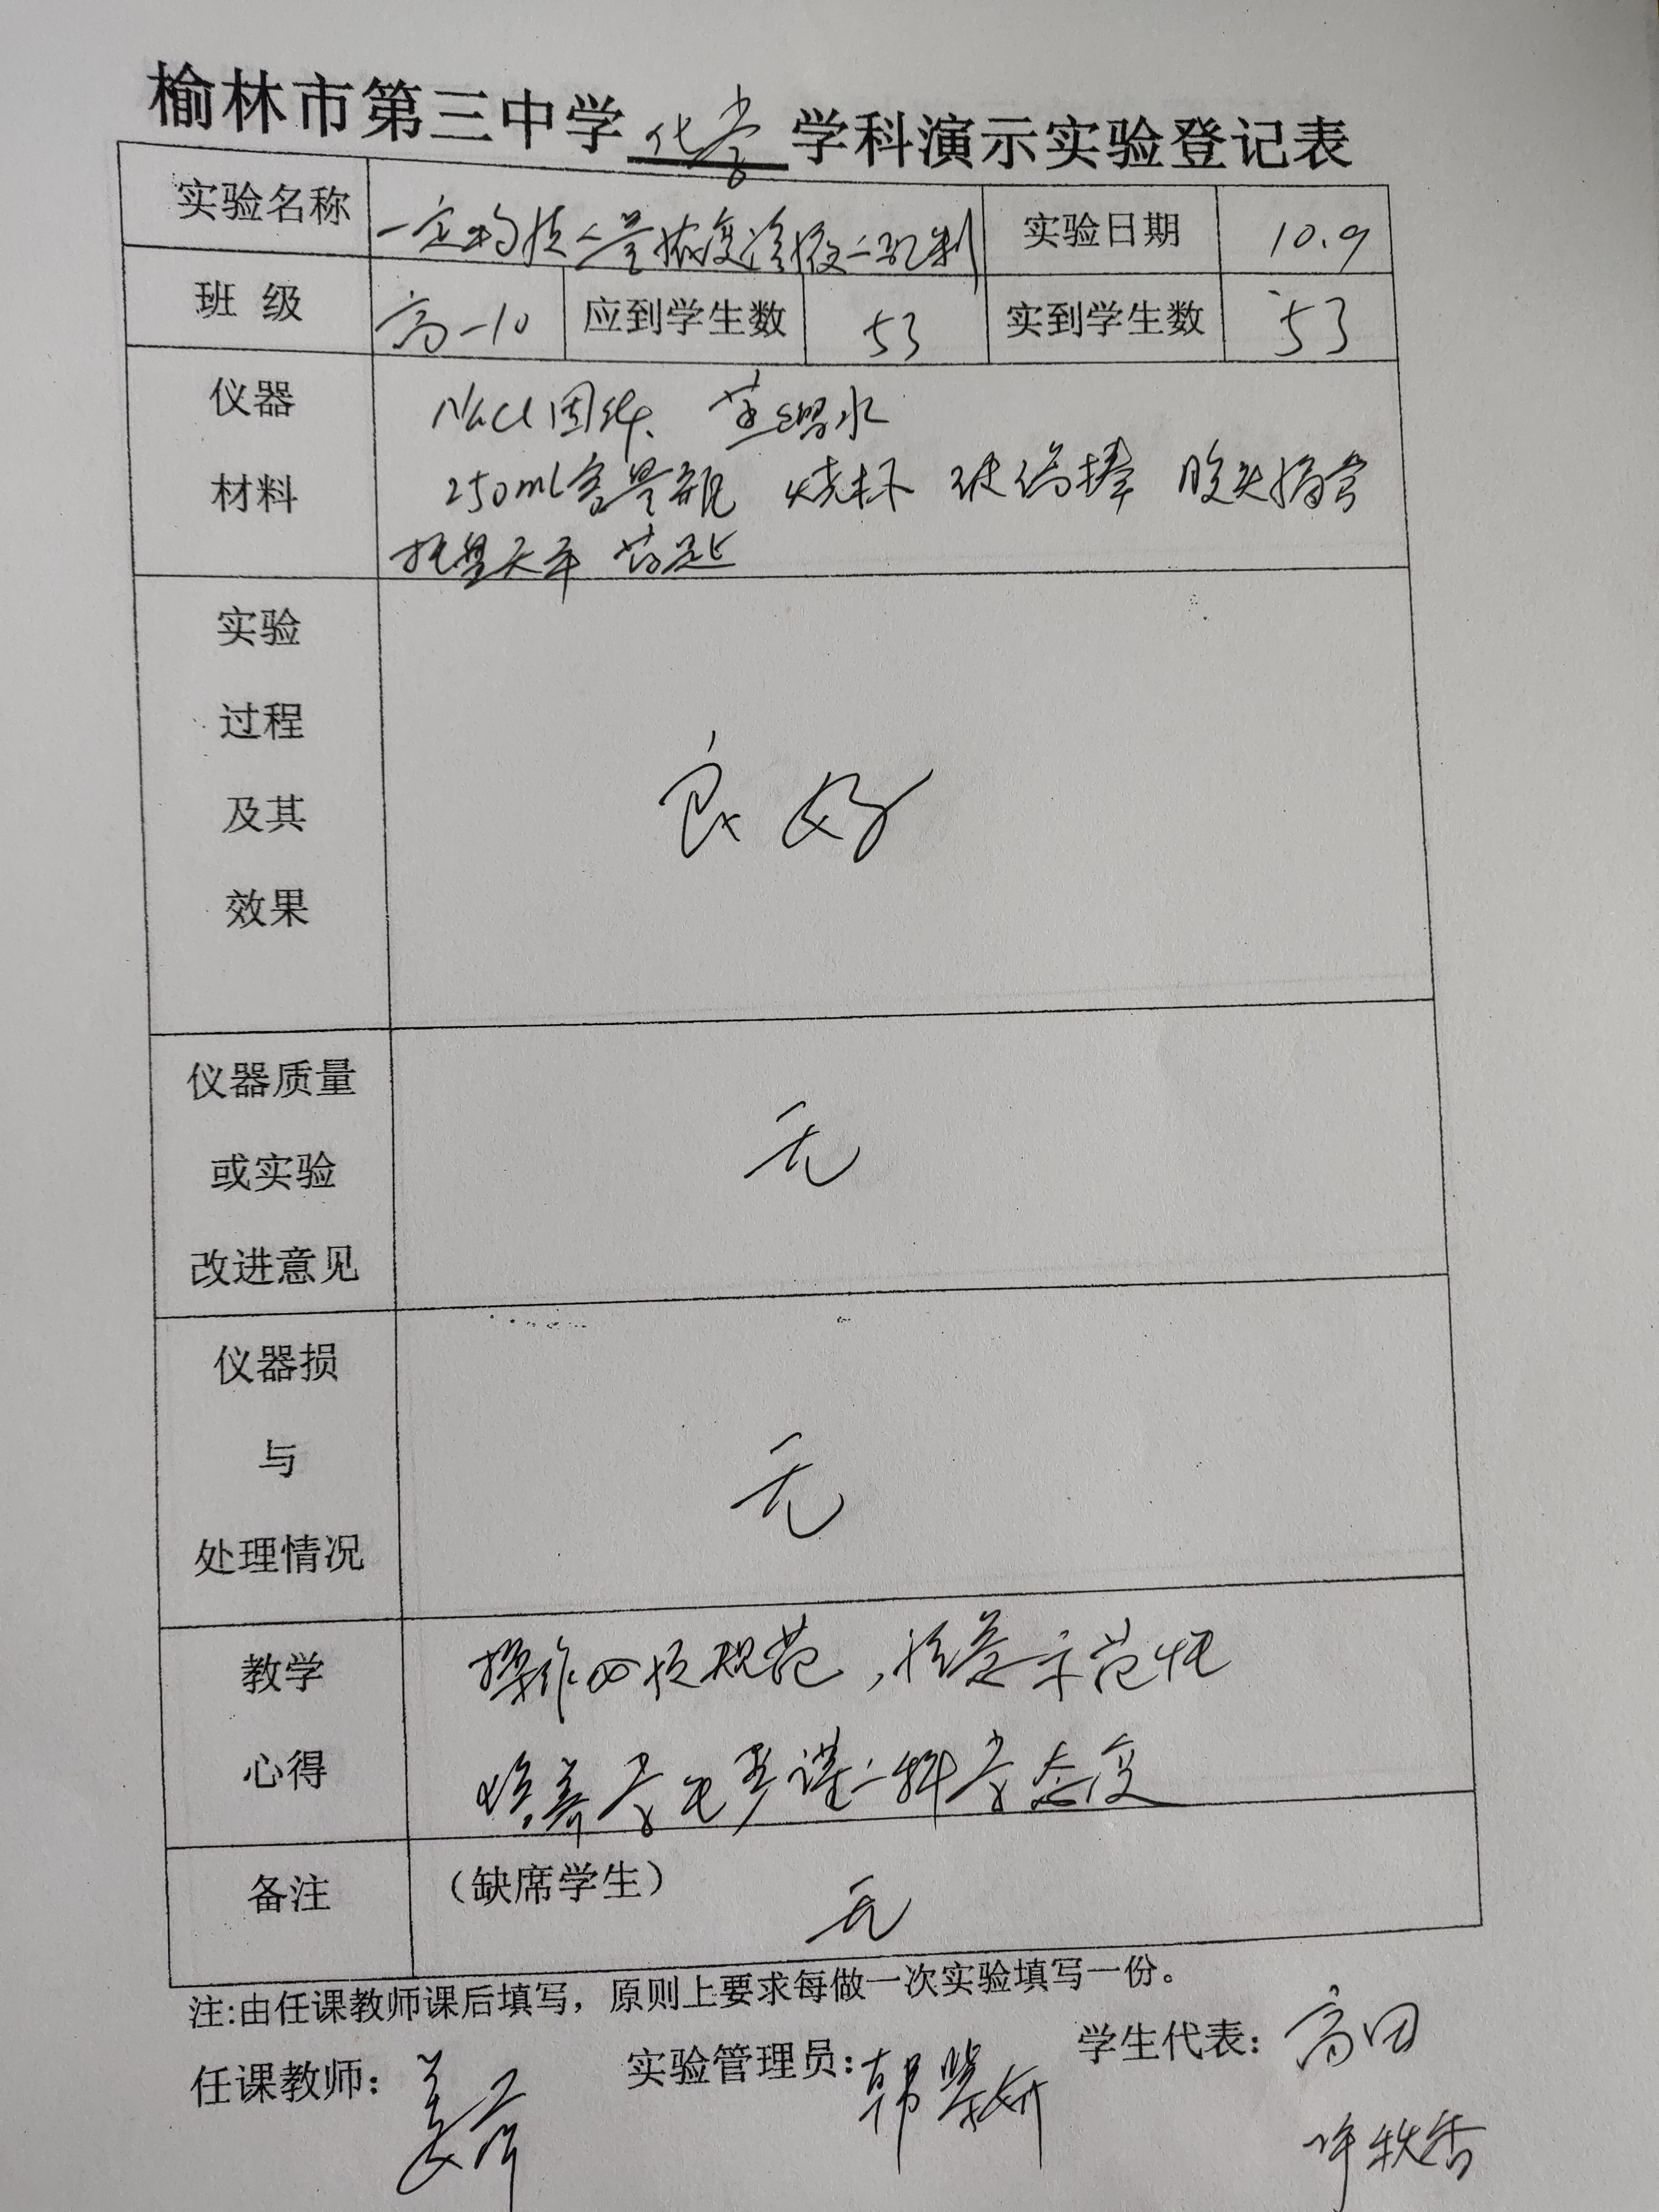 榆林市第三中学化学学科演示实验登记表
实验名称 一定物质之量浓度溶液之配制 实验日期 10.9
班 级 高一10 应到学生数 53 实到学生数 53
仪器 NaCl固体、 蒸馏水
材料 250ml容量瓶 烧杯 玻璃棒 胶头滴管
托盘天平 药匙
实验
过程
及其 良好
效果
仪器质量
或实验 无
改进意见
仪器损
与 无
处理情况
教学 操作必须规范，注意示范性
心得 培养学生严谨之科学态度
备注 （缺席学生） 无
注:由任课教师课后填写，原则上要求每做一次实验填写一份。
任课教师: 姜 实验管理员: 韩 学生代表: 高田
许轶香